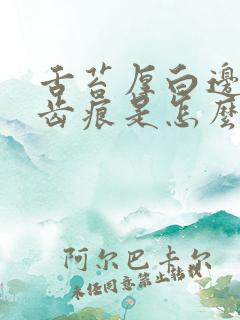 舌苔厚白边
齿痕是怎么
阿尔巴卡尔
未经同意禁止转载